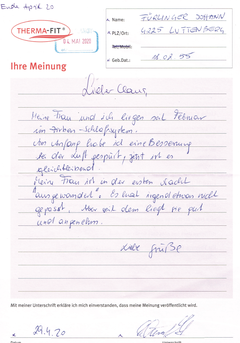 Ende April 20
THERMA-FIT®
04. MAI 2020
Name: FÜRLINGER JOHANN
PLZ/Ort: 4225 LUFTENBERG
Geb.Dat.: 18.02.55
Ihre Meinung
Lieber Claus,
Meine Frau und ich liegen seit Februar
im Zirben-Schlafsystem.
Von Anfang habe ich eine Besserung
in der Luft gespürt, jetzt ist es
gleichbleibend.
Meine Frau ist in der ersten Nacht
"ausgewandert". Es hat irgendetwas nicht
gepasst. Aber seit dem liegt sie gut
und angenehm.
Liebe Grüße
Mit meiner Unterschrift erkläre ich mich einverstanden, dass meine Meinung veröffentlicht wird.
29.4.20
Datum
Unterschrift